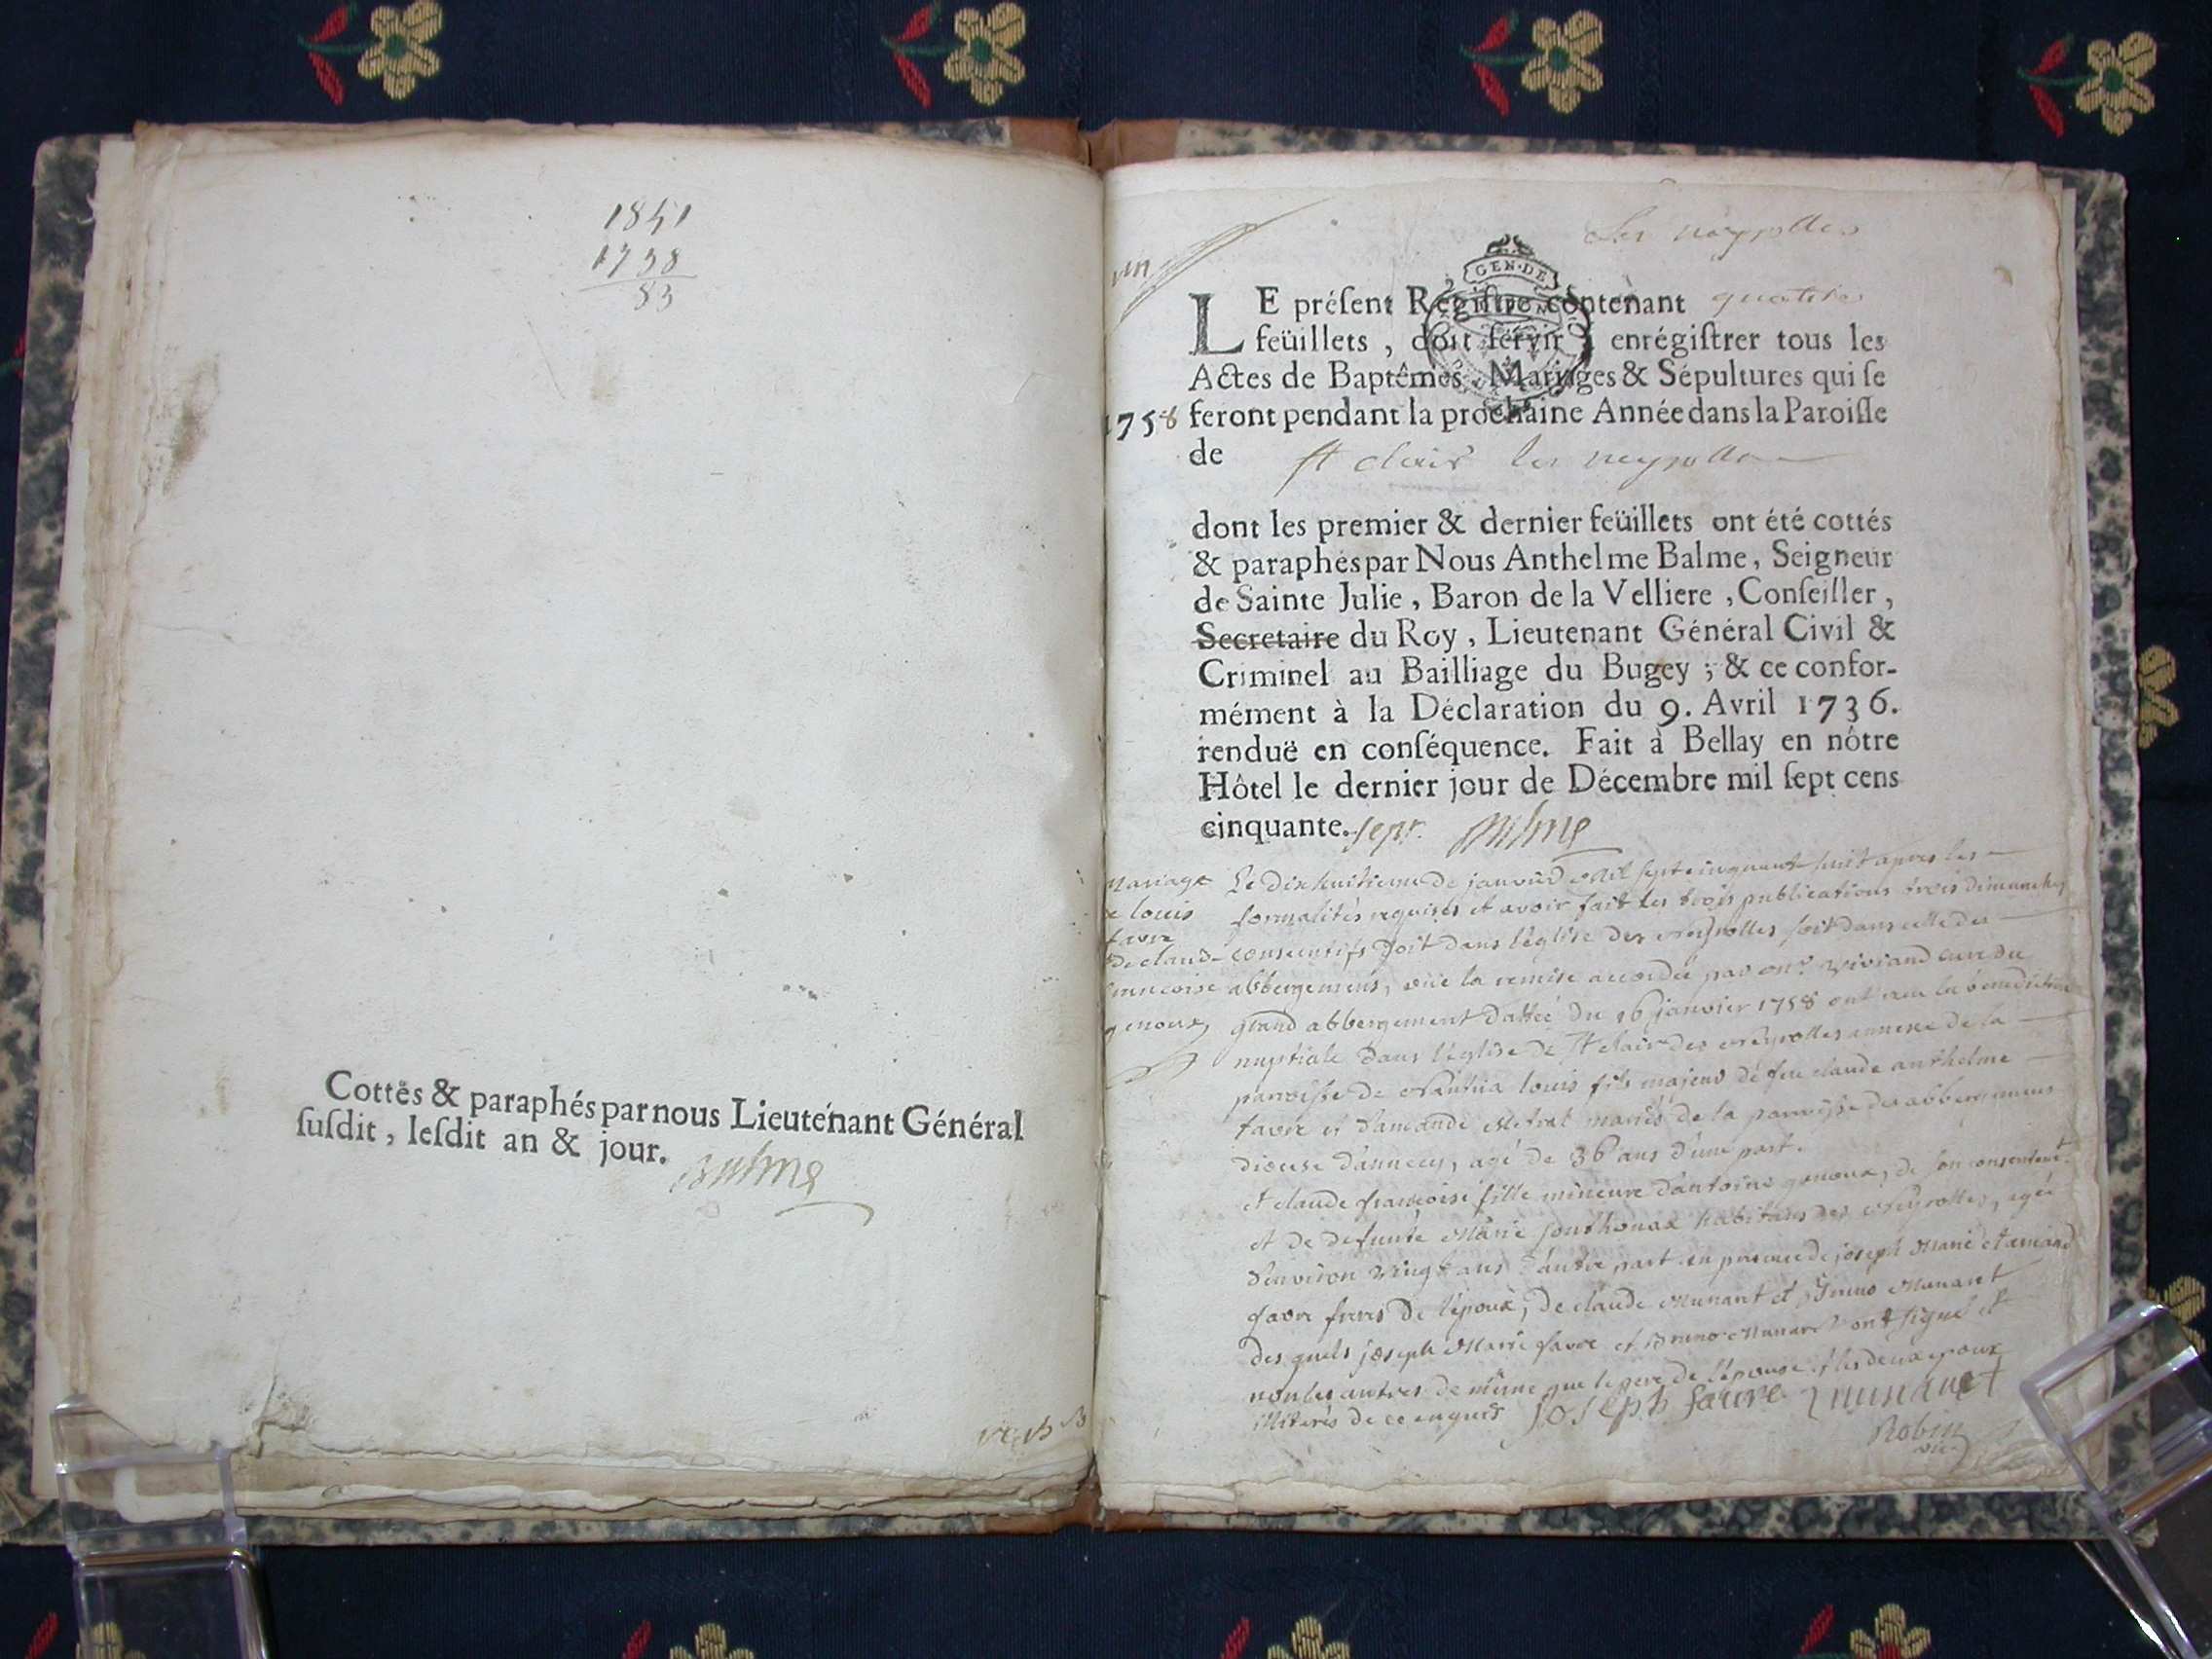 1841
1758
83
Cottés & paraphés par nous Lieutenant Général
ſuſdit, leſdit an & jour.
Balme
un
Les neyrolles
GEN·DE
LE préſent Régiſtre contenant quattre
feüillets, doit ſervir à enrégiſtrer tous les
Actes de Baptêmes, Mariages & Sépultures qui ſe
1758 feront pendant la prochaine Année dans la Paroiſſe
de St clair les neyrolles
dont les premier & dernier feüillets ont été cottés
& paraphés par Nous Anthelme Balme, Seigneur
de Sainte Julie, Baron de la Velliere, Conſeiller,
Secretaire du Roy, Lieutenant Général Civil &
Criminel au Bailliage du Bugey; & ce confor-
mément à la Déclaration du 9. Avril 1736.
renduë en conſéquence. Fait à Bellay en nôtre
Hôtel le dernier jour de Décembre mil ſept cens
cinquante. sept. Balme
Mariage
de louis
favre
& de claud
francoise
genoux
Le dixhuitieme de janvier Mil sept cinquant huit apres les
formalités requises et avoir fait les trois publications trois dimanches
consecutifs soit dans l'église des neyrolles soit dans celle des
abbergemens, vüe la remise accordée par Mr. Viviand curé du
grand abbergement dattée du 16 janvier 1758 ont recu la benediction
nuptiale dans l'église de St clair des neyrolles annexe de la
parroisse de Nantua louis fils majeur de feu claude anthelme
favre et d'amande Metral mariés de la parroisse des abbergemens
diocese d'annecy, agé de 36 ans d'une part.
et claude francoise fille mineure d'antoine genoux, de son consentement
et de defunte Marie southonax habitans des neyrolles, agée
d'environ vingt ans d'autre part en presence de joseph Marie et amand
favre freres de l'epoux, de claude Munaret et Bruno Munaret
des quels joseph Marie favre et Bruno Munaret ont signé et
non les autres de même que le pere de l'epouse et les deux epoux
illiterés de ce enquis joseph favre munaret
Robin
vic.